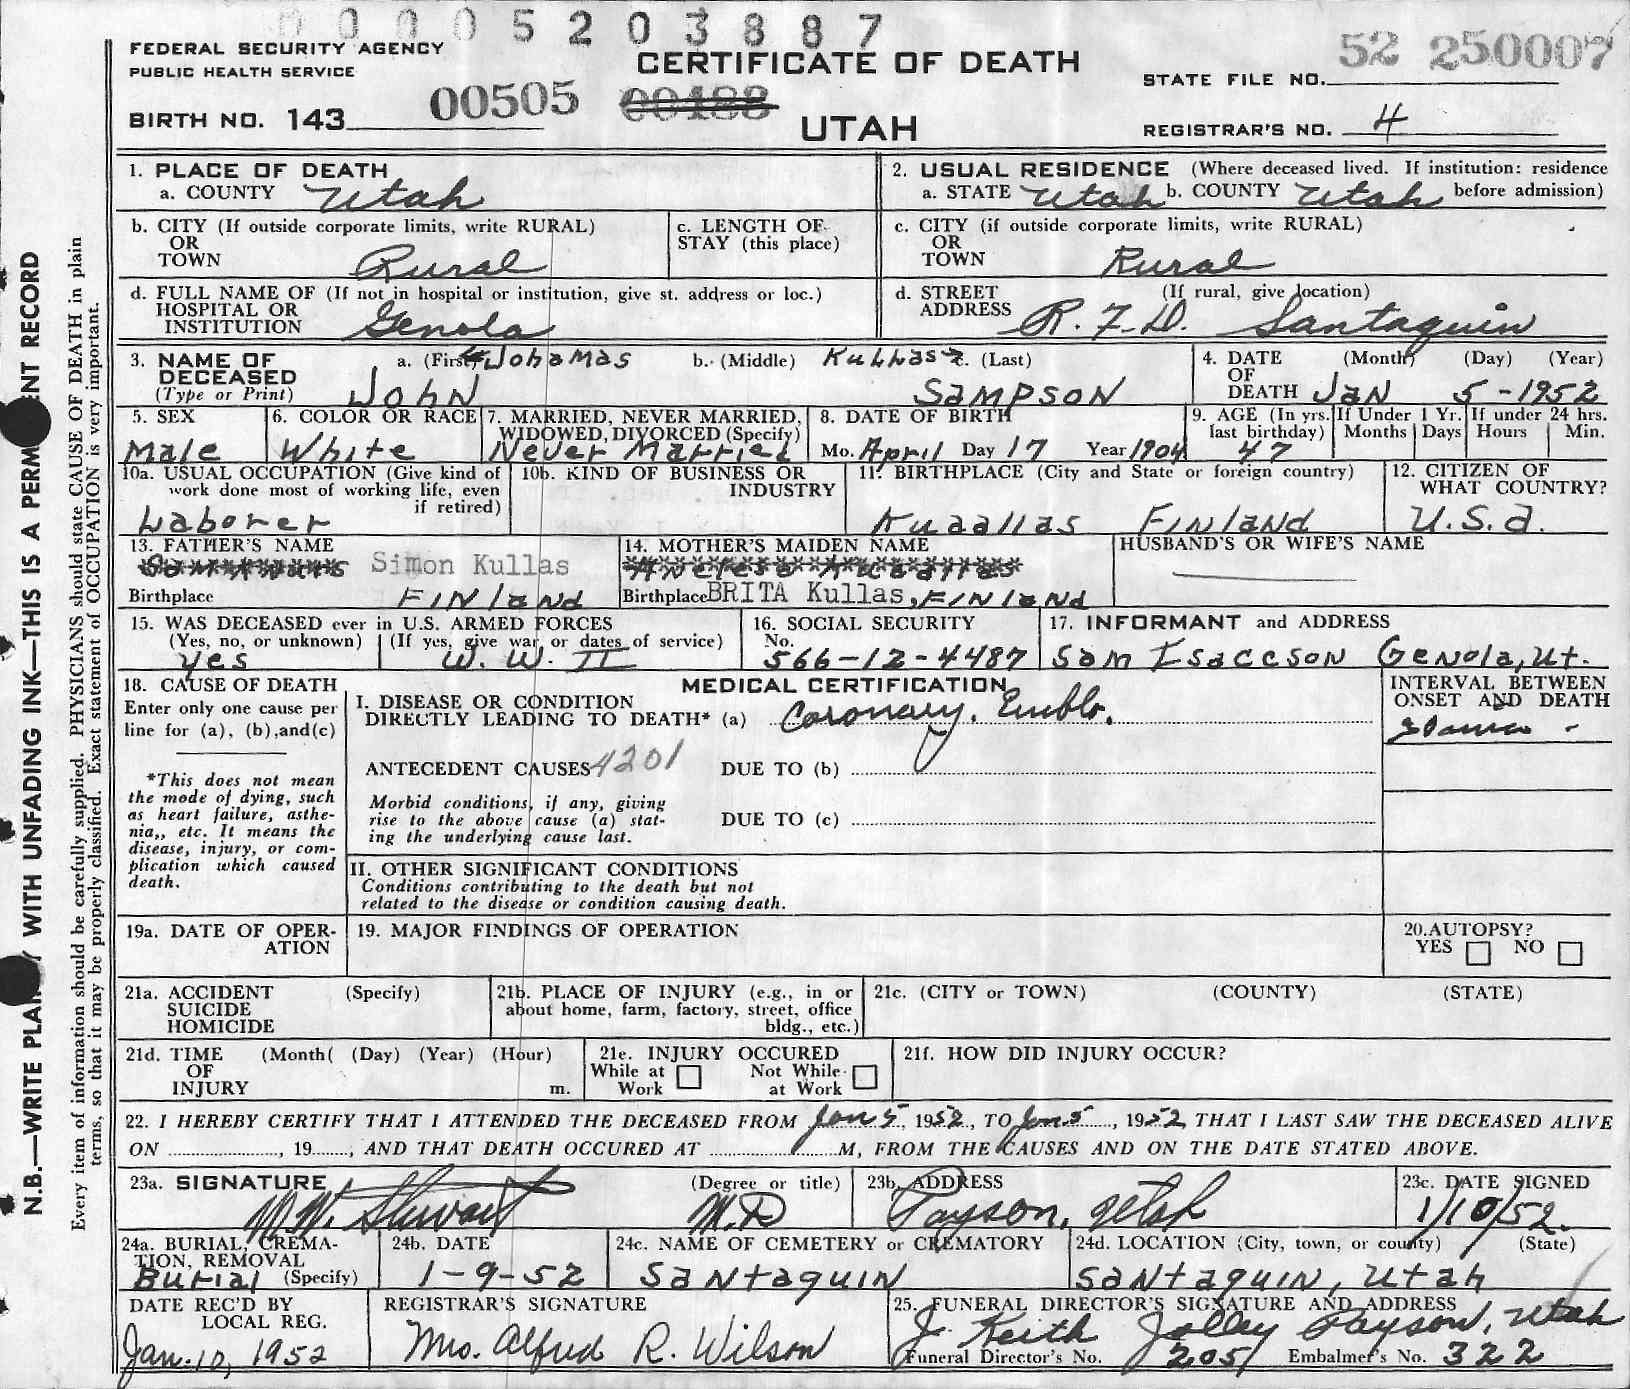 00005203887
FEDERAL SECURITY AGENCY
PUBLIC HEALTH SERVICE
CERTIFICATE OF DEATH
UTAH
STATE FILE NO. 52 250007
BIRTH NO. 143 00505 00488
REGISTRAR'S NO. 4
N.B.—WRITE PLAI WITH UNFADING INK—THIS IS A PERM ENT RECORD
Every item of information should be carefully supplied. PHYSICIANS should state CAUSE OF DEATH in plain
terms, so that it may be properly classified. Exact statement of OCCUPATION is very important.
1. PLACE OF DEATH
a. COUNTY Utah
2. USUAL RESIDENCE (Where deceased lived. If institution: residence
a. STATE Utah b. COUNTY Utah before admission)
b. CITY (If outside corporate limits, write RURAL)
OR
TOWN Rural
c. LENGTH OF
STAY (this place)
c. CITY (if outside corporate limits, write RURAL)
OR
TOWN Rural
d. FULL NAME OF (If not in hospital or institution, give st. address or loc.)
HOSPITAL OR
INSTITUTION Genola
d. STREET (If rural, give location)
ADDRESS R.F.D. Santaquin
3. NAME OF a. (First) Johamas b. (Middle) Kullas c. (Last)
DECEASED
(Type or Print) John Sampson
4. DATE (Month) (Day) (Year)
OF
DEATH Jan 5-1952
5. SEX
Male
6. COLOR OR RACE
White
7. MARRIED, NEVER MARRIED,
WIDOWED, DIVORCED (Specify)
Never Married
8. DATE OF BIRTH
Mo. April Day 17 Year 1904
9. AGE (In yrs.
last birthday)
47
If Under 1 Yr.
Months Days
If under 24 hrs.
Hours Min.
10a. USUAL OCCUPATION (Give kind of
work done most of working life, even
if retired)
Laborer
10b. KIND OF BUSINESS OR
INDUSTRY
11. BIRTHPLACE (City and State or foreign country)
Kuaallas Finland
12. CITIZEN OF
WHAT COUNTRY?
U.S.a.
13. FATHER'S NAME
Simon Kullas
Birthplace Finland
14. MOTHER'S MAIDEN NAME
Birthplace BRITA Kullas, Finland
HUSBAND'S OR WIFE'S NAME
15. WAS DECEASED ever in U.S. ARMED FORCES
(Yes, no, or unknown) (If yes, give war or dates of service)
yes W.W. II
16. SOCIAL SECURITY
No.
566-12-4487
17. INFORMANT and ADDRESS
Sam Isaccson Genola, Ut.
18. CAUSE OF DEATH
Enter only one cause per
line for (a), (b), and (c)
*This does not mean
the mode of dying, such
as heart failure, asthe-
nia,, etc. It means the
disease, injury, or com-
plication which caused
death.
MEDICAL CERTIFICATION
I. DISEASE OR CONDITION
DIRECTLY LEADING TO DEATH* (a) Coronary. Emblo.
INTERVAL BETWEEN
ONSET AND DEATH
ANTECEDENT CAUSES 4201 DUE TO (b)
Morbid conditions, if any, giving
rise to the above cause (a) stat-
ing the underlying cause last.
DUE TO (c)
II. OTHER SIGNIFICANT CONDITIONS
Conditions contributing to the death but not
related to the disease or condition causing death.
19a. DATE OF OPER-
ATION
19. MAJOR FINDINGS OF OPERATION
20. AUTOPSY?
YES NO
21a. ACCIDENT (Specify)
SUICIDE
HOMICIDE
21b. PLACE OF INJURY (e.g., in or
about home, farm, factory, street, office
bldg., etc.)
21c. (CITY or TOWN) (COUNTY) (STATE)
21d. TIME (Month( (Day) (Year) (Hour)
OF
INJURY m.
21e. INJURY OCCURED
While at Work Not While at Work
21f. HOW DID INJURY OCCUR?
22. I HEREBY CERTIFY THAT I ATTENDED THE DECEASED FROM Jan 5, 1952, TO Jan. 5, 1952 THAT I LAST SAW THE DECEASED ALIVE
ON ............, 19......, AND THAT DEATH OCCURED AT ............M, FROM THE CAUSES AND ON THE DATE STATED ABOVE.
23a. SIGNATURE (Degree or title)
M.W. Stewart M.D
23b. ADDRESS
Payson, Utah
23c. DATE SIGNED
1/10/52.
24a. BURIAL, CREMA-
TION, REMOVAL
Burial (Specify)
24b. DATE
1-9-52
24c. NAME OF CEMETERY or CREMATORY
Santaquin
24d. LOCATION (City, town, or county) (State)
Santaquin, Utah
DATE REC'D BY
LOCAL REG.
Jan. 10, 1952
REGISTRAR'S SIGNATURE
Mrs. Alfred R. Wilson
25. FUNERAL DIRECTOR'S SIGNATURE AND ADDRESS
J. Keith Jolley Payson, Utah
Funeral Director's No. 205 Embalmer's No. 322